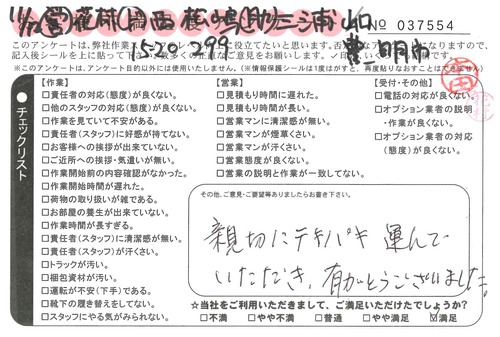 No 037554
15:20 299
豊明市
このアンケートは、弊社作業
※このアンケートは、アンケート目的以外には使用いたしません。(※情報保護シールは1度はがすと、再度貼りなおすことはできません)
チェックリスト
【作業】
□責任者の対応(態度)が良くない。
□他のスタッフの対応(態度)が良くない。
□作業を見ていて不安がある。
□責任者(スタッフ)に好感が持てない。
□お客様への挨拶が出来ていない。
□ご近所への挨拶・気遣いが無い。
□作業開始前の内容確認がなかった。
□作業開始時間が遅れた。
□荷物の取り扱いが雑である。
□お部屋の養生が出来ていない。
□作業時間が長すぎる。
□責任者(スタッフ)に清潔感が無い。
□責任者(スタッフ)が汗くさい。
□トラックが汚い。
□梱包資材が汚い。
□運転が不安(下手)である。
□靴下の履き替えをしてない。
□スタッフにやる気がみられない。
【営業】
□見積もり時間に遅れた。
□見積もり時間が長い。
□営業マンに清潔感が無い。
□営業マンが煙草くさい。
□営業マンが汗くさい。
□営業態度が良くない。
□営業の説明と作業が一致してない。
【受付・その他】
□電話の対応が良くない。
□オプション業者の説明・作業が良くない。
□オプション業者の対応(態度)が良くない。
その他、ご意見・ご要望等ありましたらお書き下さい。
親切にテキパキ運んで
いただき、有がとうございました。
☆当社をご利用いただきまして、ご満足いただけたでしょうか?
□不満 □やや不満 □普通 □やや満足 ☑満足